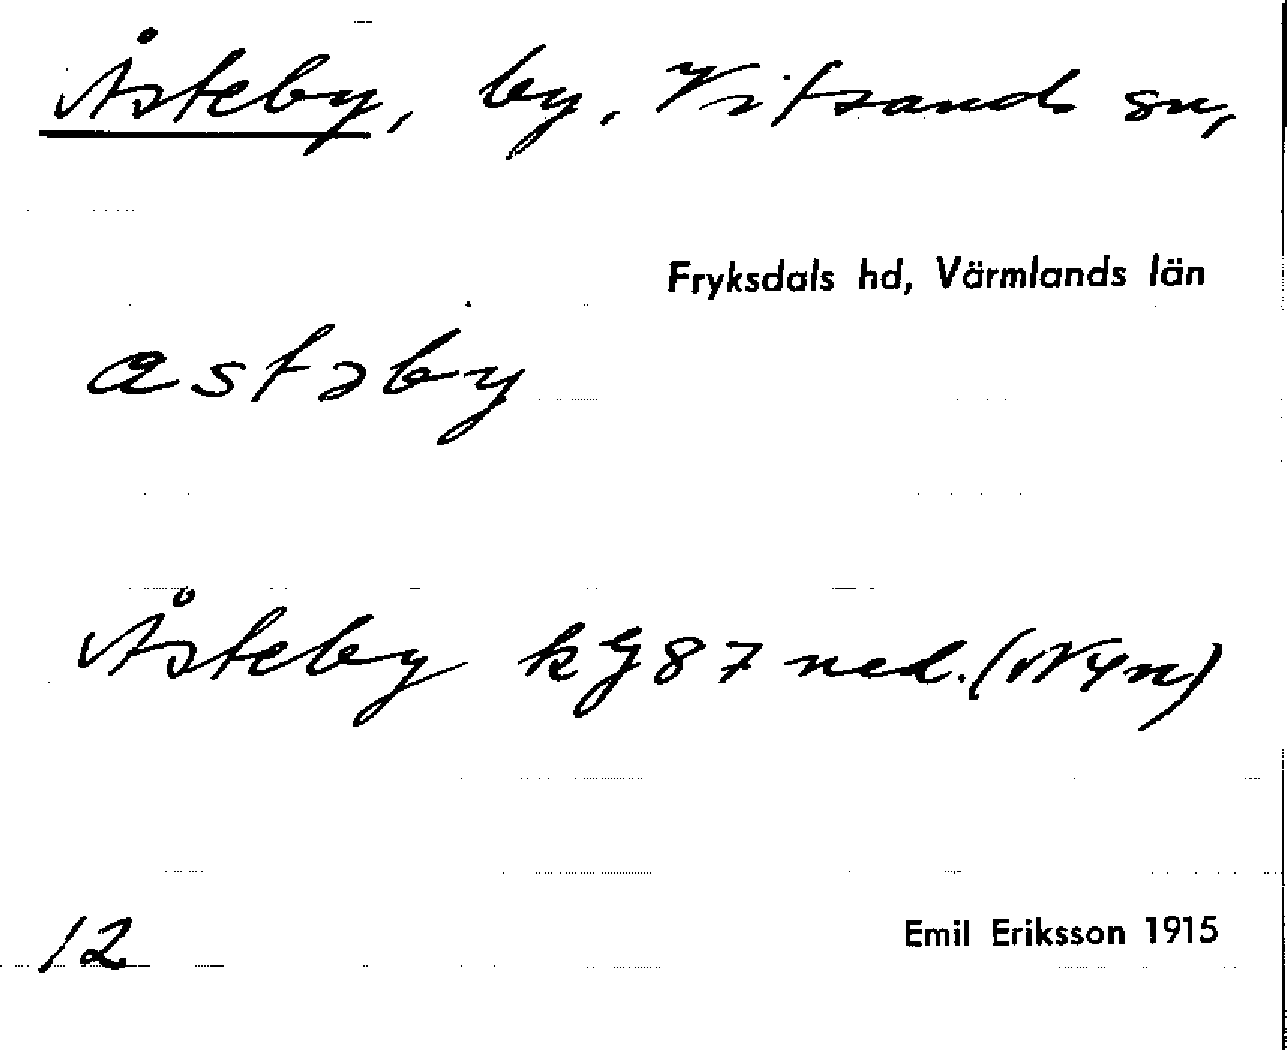 Åsteby, by, Vitsands sn,
Fryksdals hd, Värmlands län
astəby
Åsteby kG87 ned. (N4n)
12
Emil Eriksson 1915